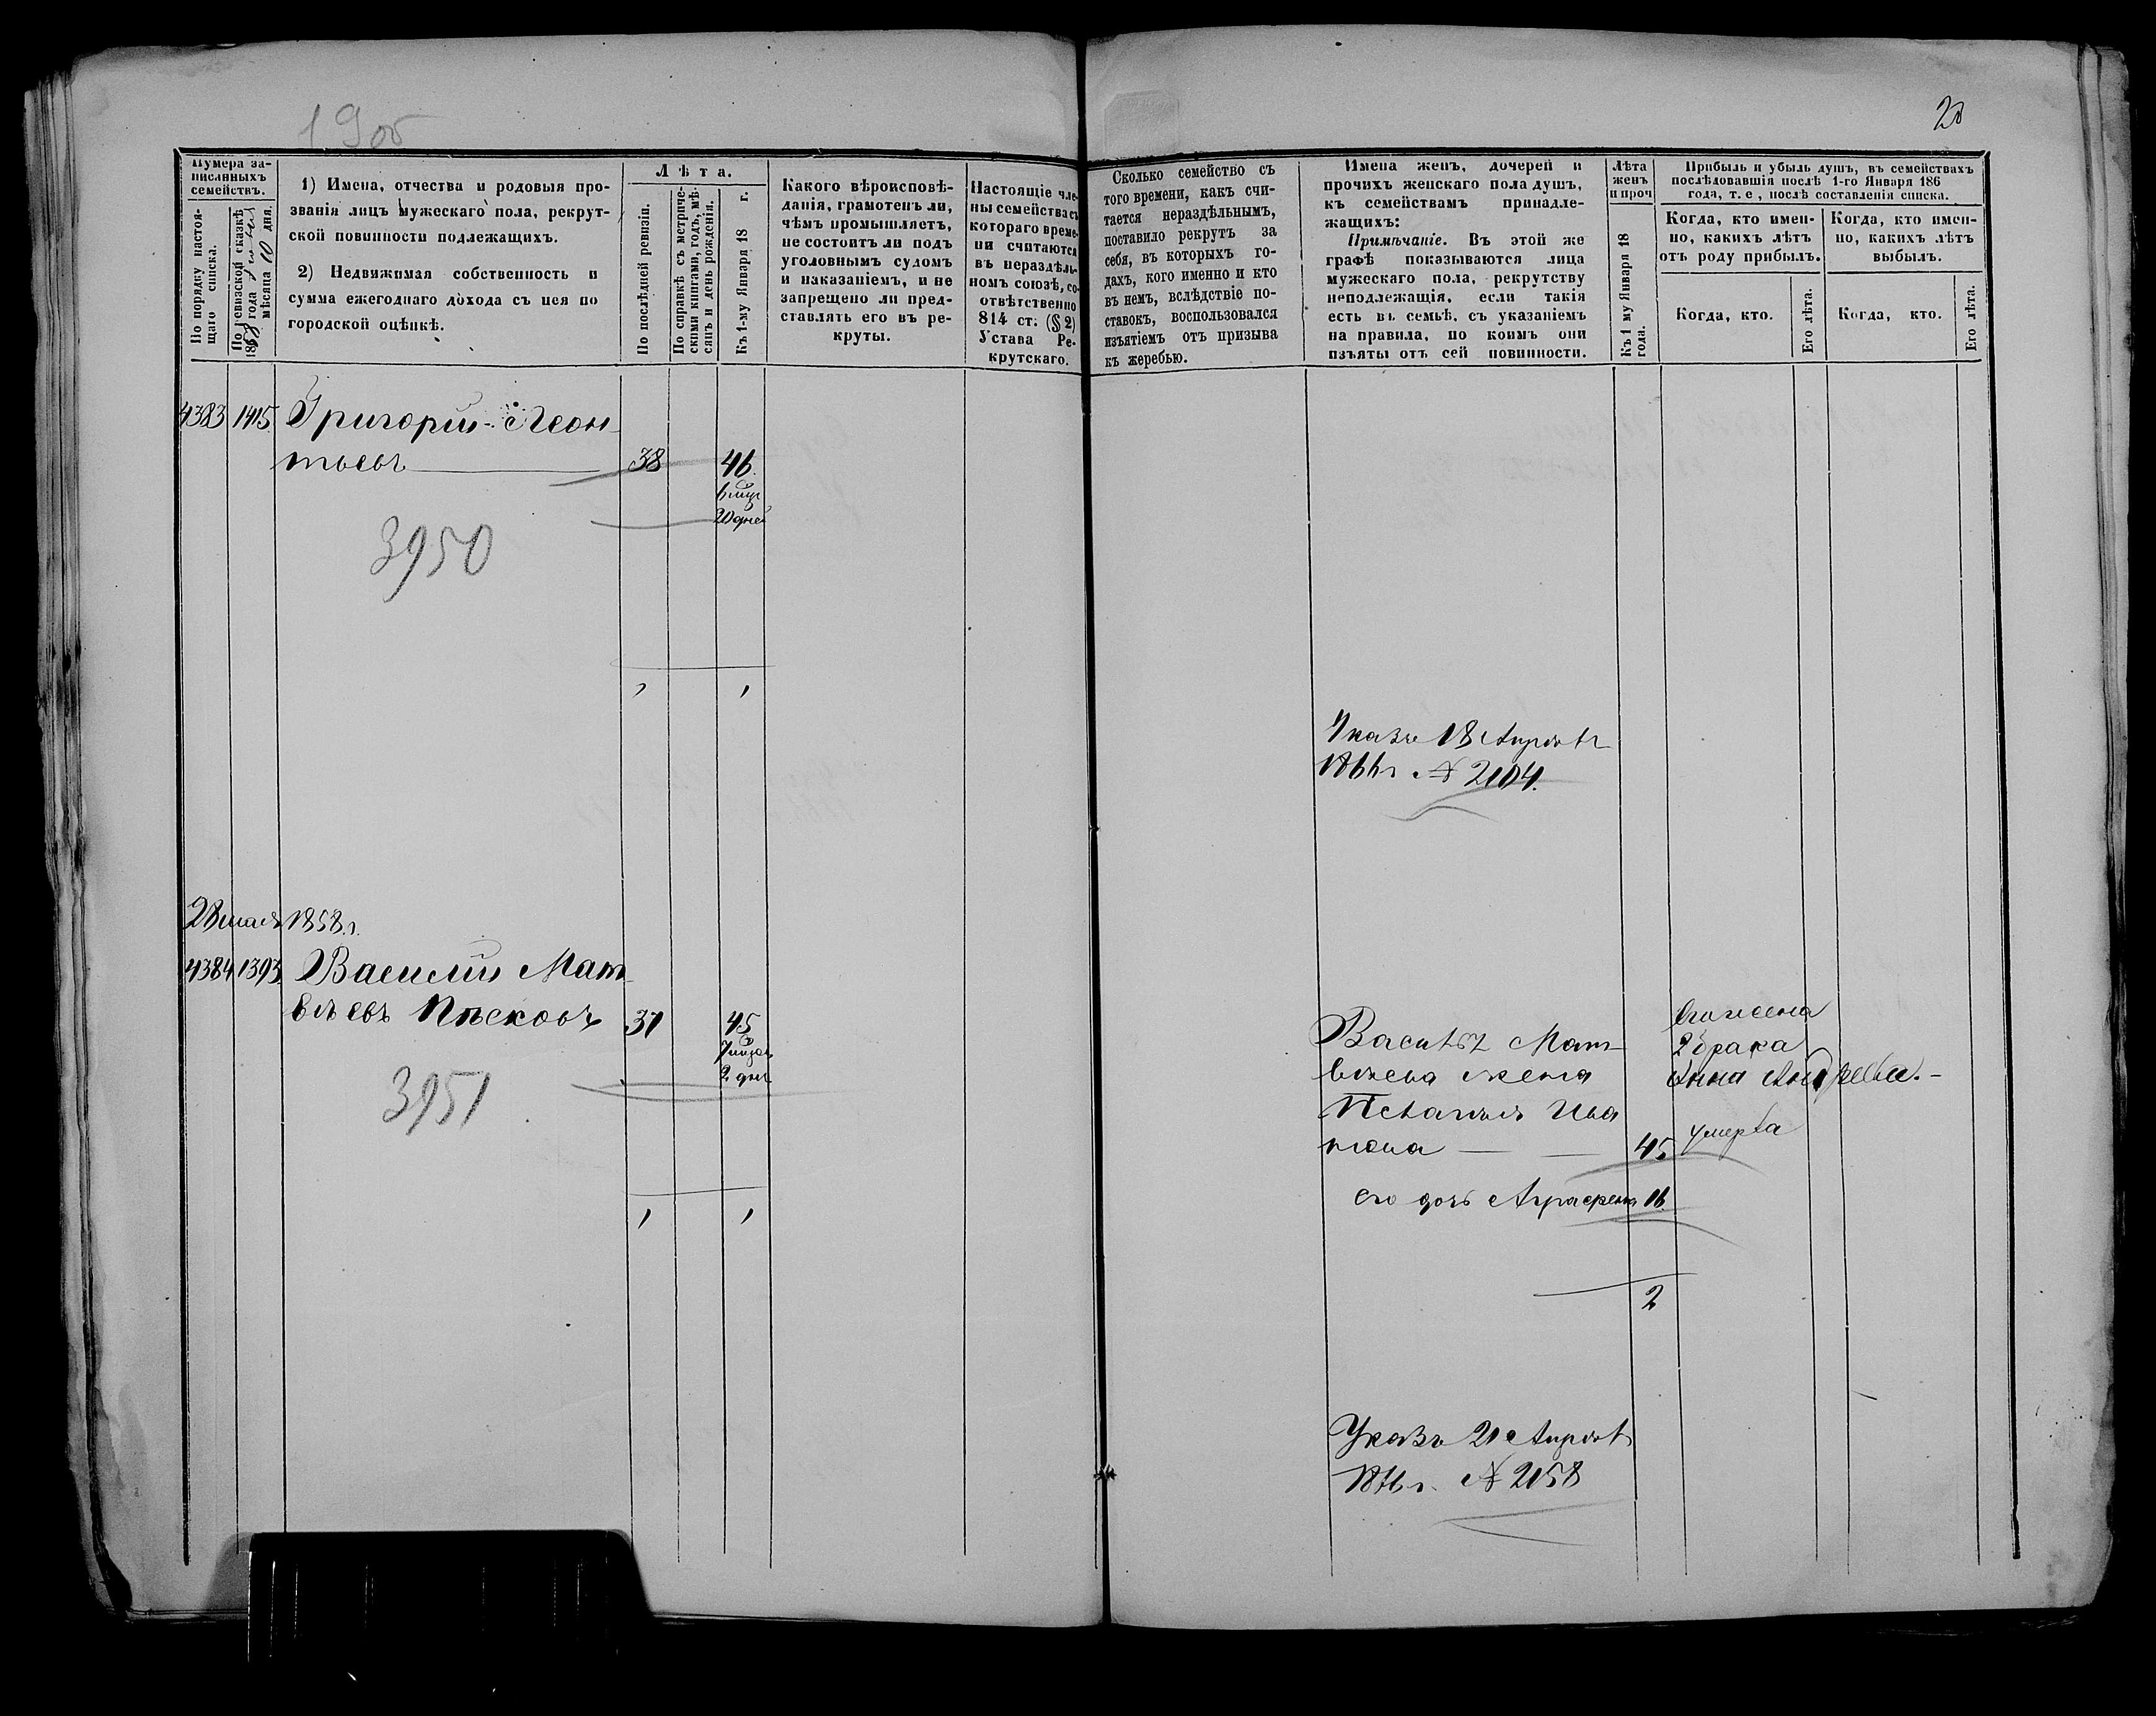 19об
28
Нумера за-
писанныхъ
семействъ.
По порядку настоя-
щаго списка.
По ревизской сказкѣ
1858 года
мѣсяца 10 дня.
1) Имена, отчества и родовыя про-
званія лицъ мужескаго пола, рекрут-
ской повинности подлежащихъ.
2) Недвижимая собственность и
сумма ежегоднаго дохода съ нея по
городской оцѣнкѣ.
Лѣта.
По послѣдней ревизіи.
По справкѣ съ метриче-
скими книгами, годъ, мѣ-
сяцъ и день рожденія.
Къ 1-му Января 18 г.
Какого вѣроисповѣ-
данія, грамотенъ ли,
чѣмъ промышляетъ,
не состоитъ ли подъ
уголовнымъ судомъ
и наказаніемъ, и не
запрещено ли пред-
ставлять его въ ре-
круты.
Настоящіе чле-
ны семейства съ
котораго време-
ни считаются
въ нераздѣль-
номъ союзѣ, со-
отвѣтственно
814 ст. (§ 2)
Устава Ре-
крутскаго.
Сколько семейство съ
того времени, какъ счи-
тается нераздѣльнымъ,
поставило рекрутъ за
себя, въ которыхъ го-
дахъ, кого именно и кто
въ немъ, вслѣдствіе по-
ставокъ, воспользовался
изъятіемъ отъ призыва
къ жеребью.
Имена женъ, дочерей и
прочихъ женскаго пола душъ,
къ семействамъ принадле-
жащихъ:
Примѣчаніе. Въ этой же
графѣ показываются лица
мужескаго пола, рекрутству
неподлежащія, если такія
есть въ семьѣ, съ указаніемъ
на правила, по коимъ они
изъяты отъ сей повинности.
Лѣта
женъ
и проч
Къ 1 му Января 18
года.
Прибыль и убыль душъ, въ семействахъ
послѣдовавшія послѣ 1-го Января 186
года, т. е, послѣ составленія списка.
Когда, кто имен-
но, какихъ лѣтъ
отъ роду прибылъ.
Когда, кто.
Его лѣта.
Когда, кто имен-
но, какихъ лѣтъ
выбылъ.
Когда, кто.
Его лѣта.
4383 1415. Григорій Леон-
тьевъ 38 46.
6 мѣс
20 дней
3950
1 1
Указъ 18 Апрѣля
1866 г. № 2104.
28 мая 1858 г.
4384 1393. Василій Мат-
вѣевъ Пѣсковъ 37 45
7 мѣс
2 дня
3951
1 1
Василья Мат-
вѣева жена
Пелагея Ива
нова 45
его дочь Аграфена 16.
2
его жена
2 брака
Анна Андреева.-
умерла
Указъ 21 Апрѣля
г. № 2158